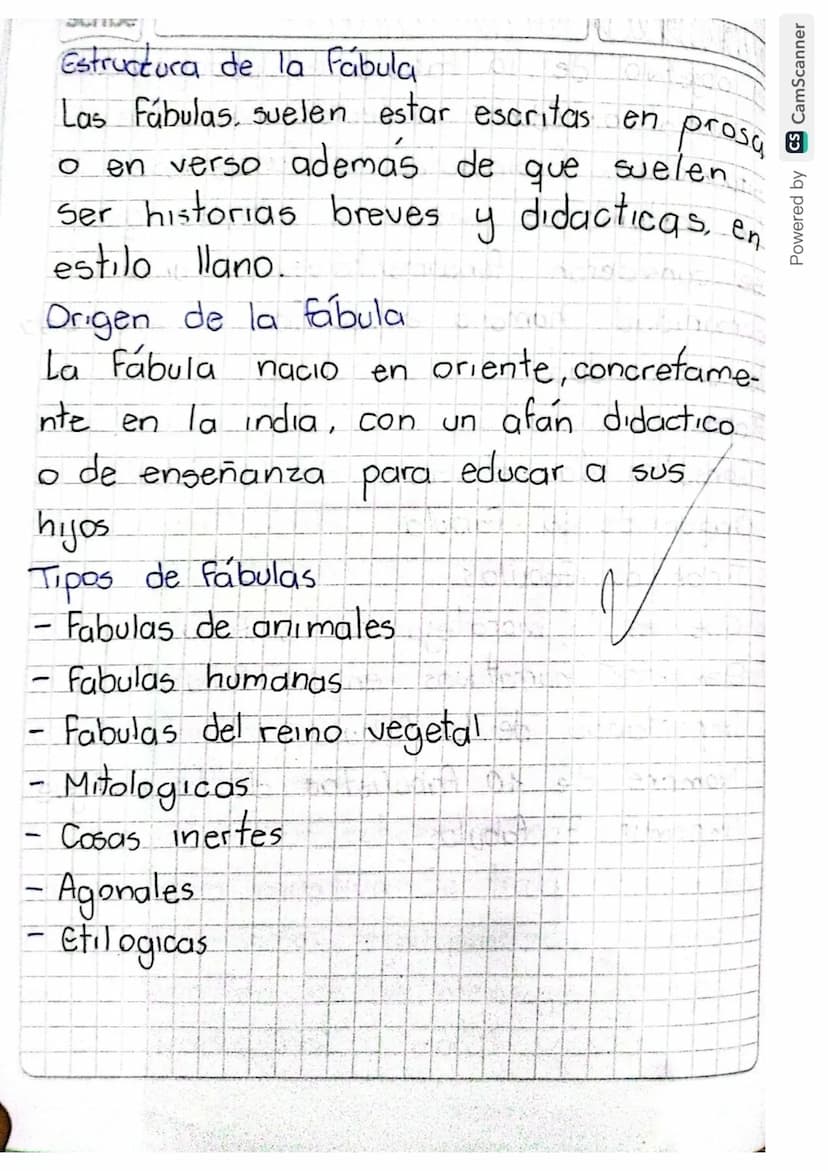 Estructura de la Fábula
Las Fábulas, suelen estar escritas en prosa
o en verso además de que suelen
ser historias breves y didacticas, en
estilo llano.
Origen de la fábula
La Fábula nacio en oriente, concretame-
nte en la india, con un afán didactico
o de enseñanza para educar a sus
hijos
Tipos de Fábulas
- Fabulas de animales
- Fabulas humanas
- Fabulas del reino vegetal
- Mitologicas
- Cosas inertes
- Agonales
- Etilogicas
Powered by CS CamScanner